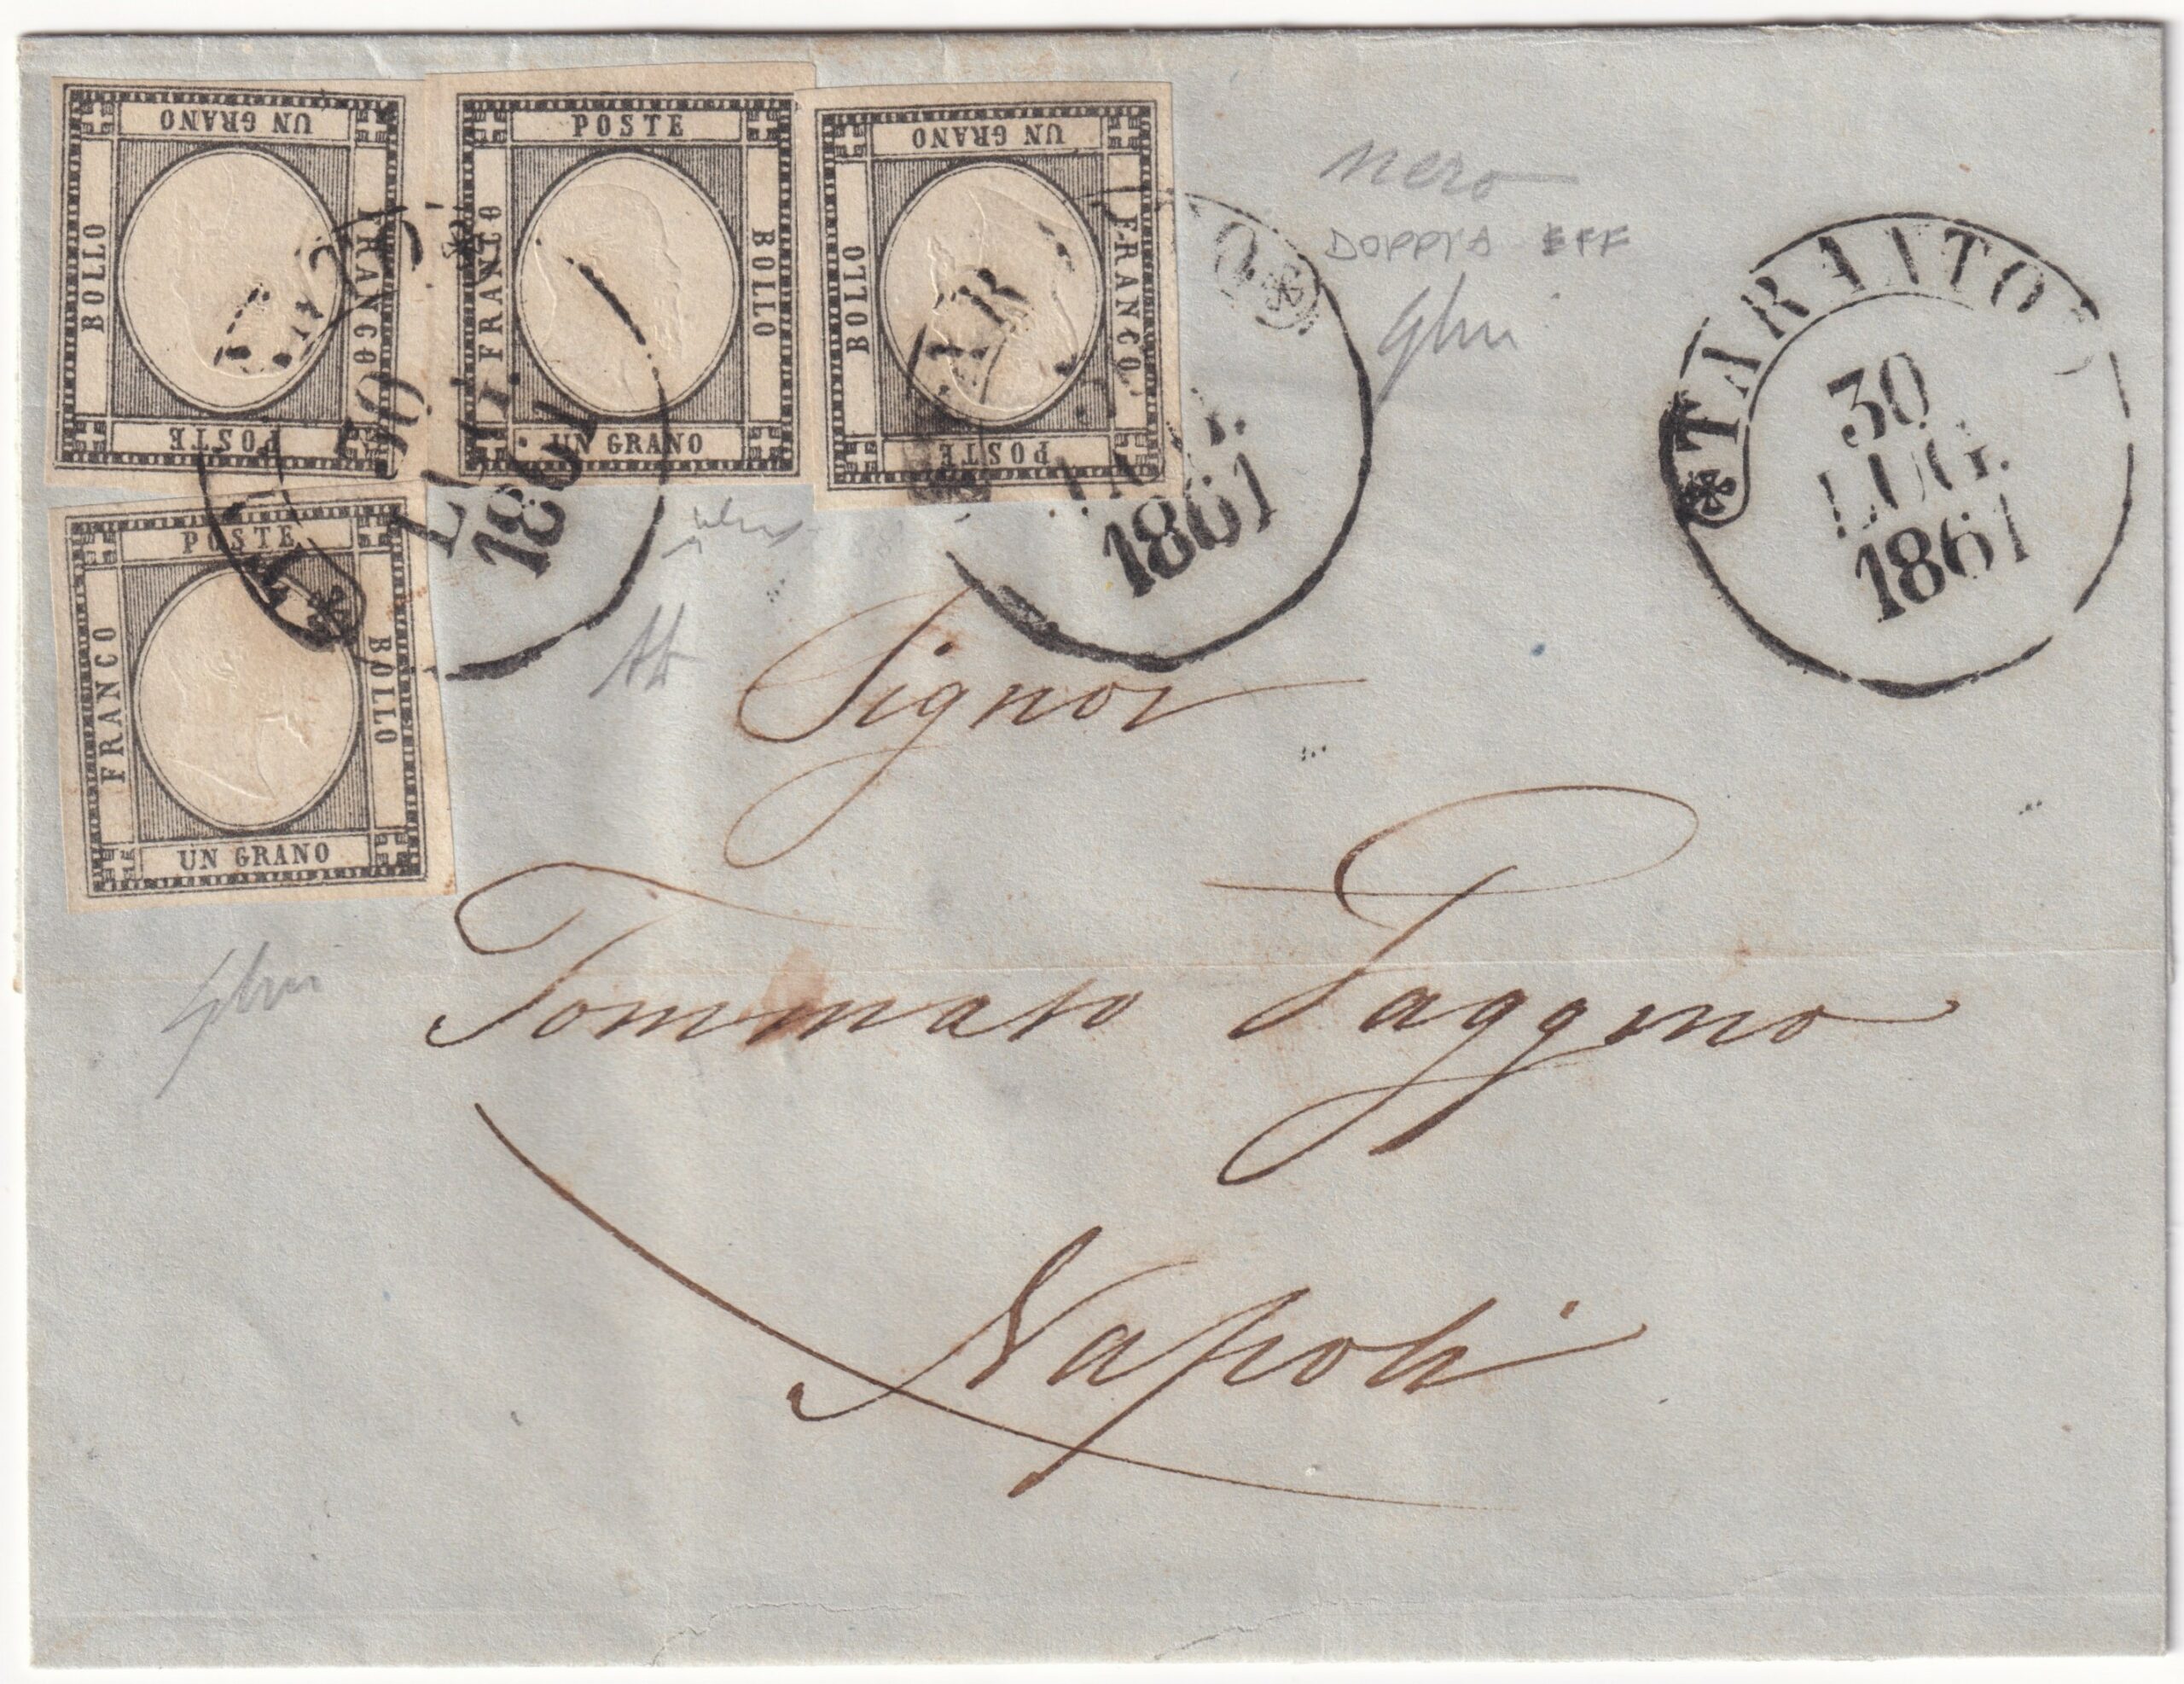 UN GRANO
BOLLO
FRANCO
POSTE
POSTE
FRANCO
BOLLO
UN GRANO
UN GRANO
BOLLO
FRANCO
POSTE
POSTE
FRANCO
BOLLO
UN GRANO
30
LUG.
1861
LUG.
1861
TARANTO
30
LUG.
1861
nero
DOPPIA EFF
Signor
Tommaso Paggino
Napoli